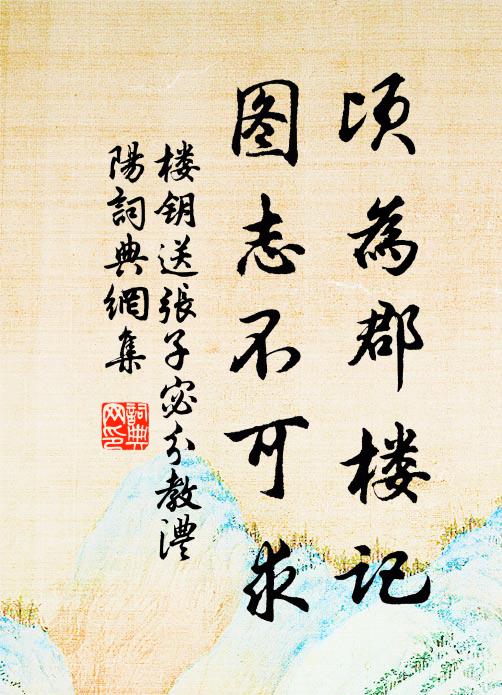 顷為郡楼记
图志不可求
楼钥送張子宓分教澧
陽詞典網集
詞典
网印